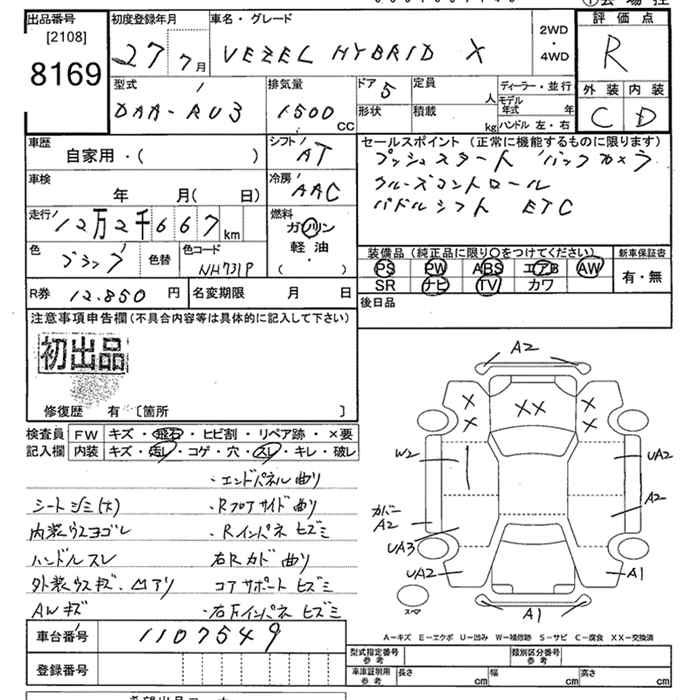 出品番号 初度登録年月 車名・グレード 2WD・4WD 評価点
[2108]
8169 27年 7月 VEZEL HYBRID X R
型式 排気量 ドア 定員 ディーラー・並行 外装 内装
DAA-RU3 1500CC 5 人 モデル年式 年 C D
形状 積載 kg ハンドル 左・右
車歴 シフト セールスポイント (正常に機能するものに限ります)
自家用・( ) AT プッシュスタート バックカメラ
車検 冷房 クルーズコントロール
年 月( 日) AAC パドルシフト ETC
走行 12万2千667km 燃料
ガソリン
軽油
( ・ )
色 ブラック 色替 色コード NH731P
装備品 (純正品に限り○をつけてください) 新車保証書
PS PW ABS エアB AW 有・無
SR ナビ TV カワ
R券 12.850円 名変期限 月 日 後日品
注意事項申告欄(不具合内容等は具体的に記入して下さい)
初出品
修復歴 有 〔箇所 〕
検査員 FW キズ・飛石・ヒビ割・リペア跡・×要
記入欄 内装 キズ・汚レ・コゲ・穴・スレ・キレ・破レ
・エンドパネル曲り
シートシミ(大) ・Rフロアサイド曲り
内装ウスヨゴレ ・Rインパネヒズミ
ハンドルスレ 右Rカド曲り
外装ウスキズ・凹アリ コアサポートヒズミ
AWキズ ・右Fインパネヒズミ
車台番号 1107549
登録番号
A2
× ×× ×
× ×
W2 UA2
カバー
A2 A2
UA3
UA2 A1
スペア A1
A-キズ E-エクボ U-凹み W-補修跡 S-サビ C-腐食 XX-交換済
型式指定番号 参考 類別区分番号 参考
車庫証明用 参考 長さ cm 幅 cm 高さ cm